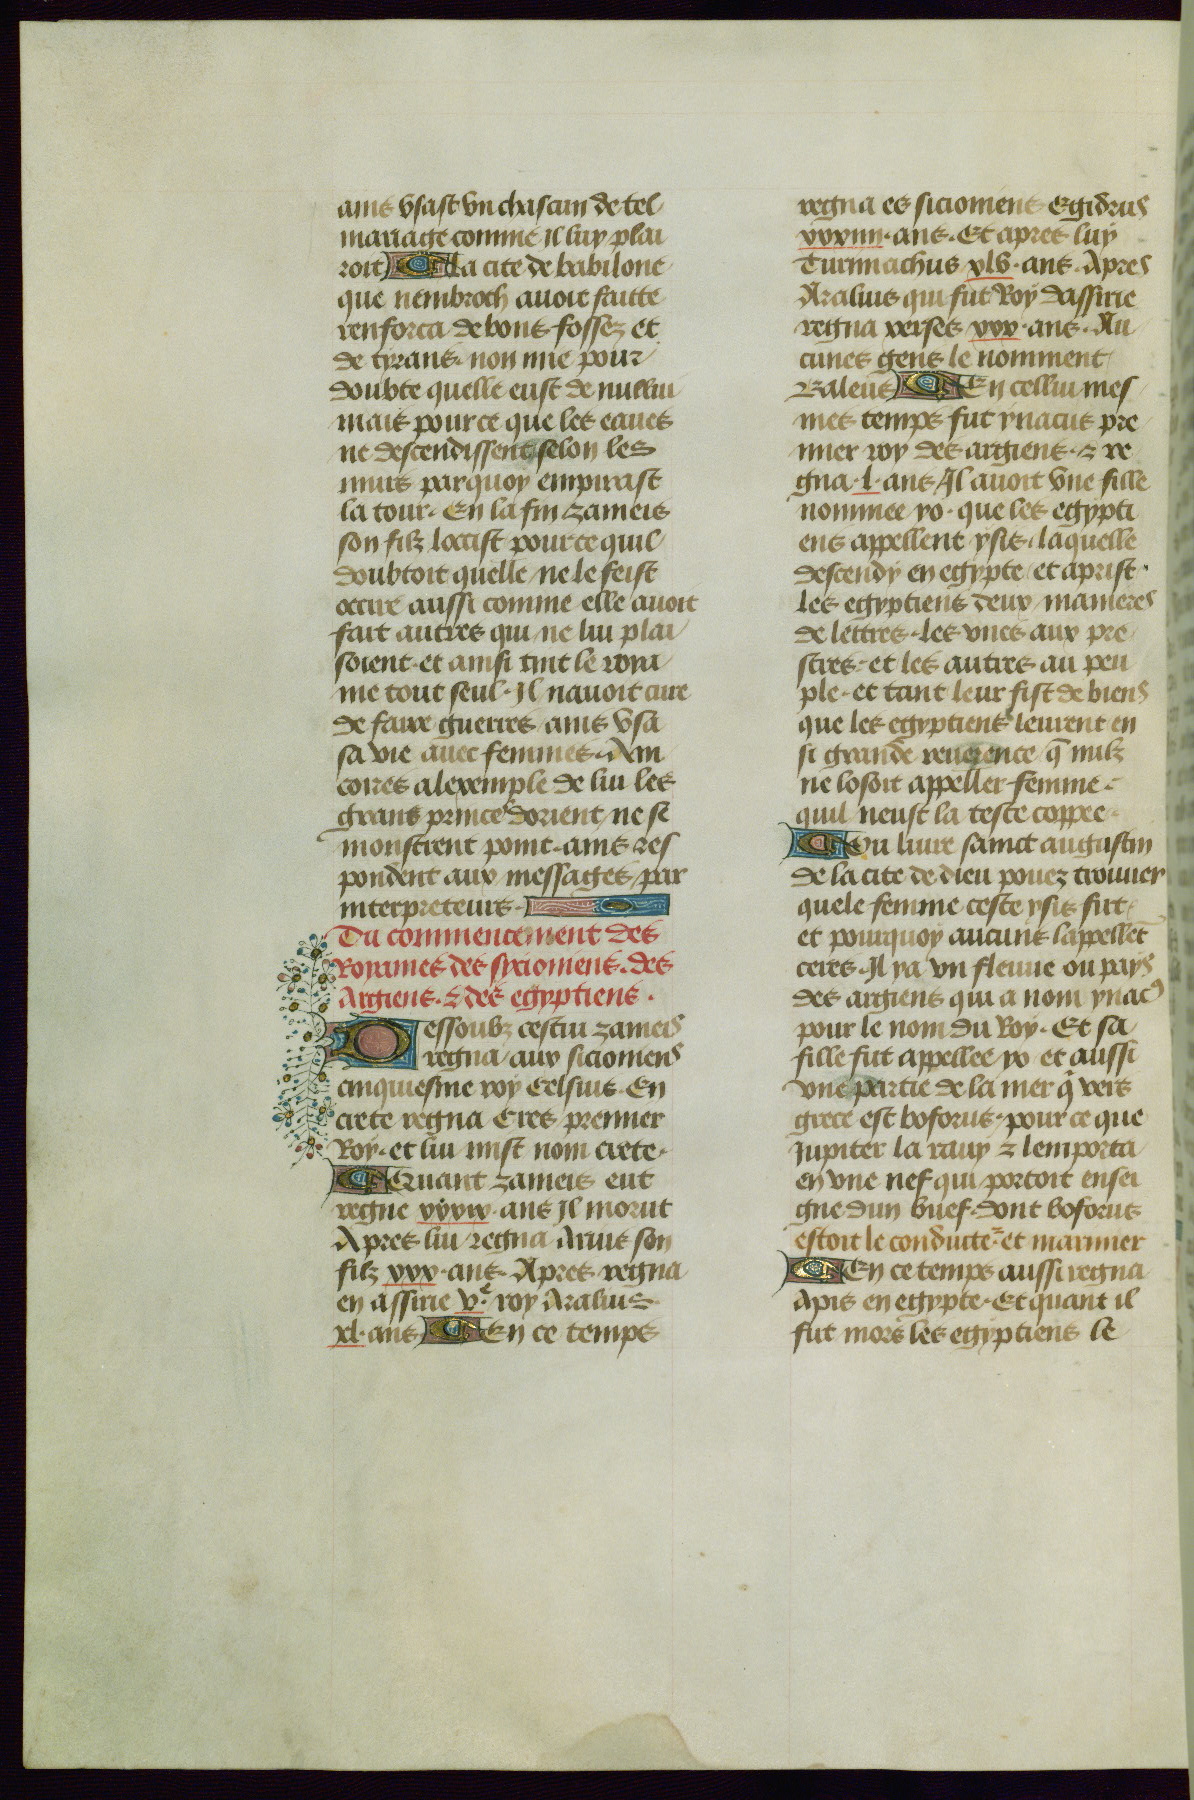 ains vsast vn chascun de tel
mariage comme il luy plai
roit La cite de babilone
que nembroch auoit faitte
renforca de bons fossez et
de tyrans. non mie pour
doubte quelle eust de nulluy
mais pour ce que les eaues
ne descendissent selon les
murs parquoy empirast
la tour. En la fin zameis
son filz loccist pour ce quil
doubtoit quelle ne le feist
occire aussi comme elle auoit
fait autres qui ne lui plai
soient. et ainsi tint le roya
me tout seul. Il nauoit cure
de faire guerres ains vsa
sa vie auec femmes. Am
coires alexemple de lui les
grans princes dorient ne se
monstrent point. ains res
pondent aux messages par
interpreteurs.
Du commencement des
Royames des syciomens. des
Argiens. & des egyptiens.
Dessoubz cestui zameis
regna aux siciomens
cinquiesme roy Celsius. En
crete regna Cres premier
Roy. et lui mist nom crete.
Quant zameis eut
regne xxxix. ans Il morut
Apres lui regna Arius son
filz xxx. ans. Apres regna
en assirie v.e roy Aralius
xl. ans En ce temps
regna es siciomens Egidrus
xxxiiii. ans. Et apres luy
Turimachus xlv. ans. Apres
Aralius qui fut Roy dassirie
regna xerses xxx. ans. Au
cunes gens le nomment
Baleus En cellui mes
mes temps fut ynacus pre
mier roy des argiens. & re
gna. l. ans Il auoit vne fille
nommee yo. que les egypti
ens appellent ysis. laquelle
descendy en egypte et aprist.
les egyptiens deux manieres
de lettres. les vnes aux pre
stres. et les autres au peu
ple. et tant leur fist de biens
que les egyptiens leurent en
si grande reuerence q̄ nulz
ne losoit appeller femme.
quil neust la teste coppee.
Ou liure saint augustin
de la cite de dieu pouez trouuer
quele femme ceste ysis fut
et pourquoy aucuns lappellēt
ceres. Il ya vn fleuue ou pays
des argiens qui a nom ynacꝰ
pour le nom du Roy. Et sa
fille fut appellee yo et aussi
vne partie de la mer q̄ vers
grece est boforus. pour ce que
Jupiter la rauy & lemporta
en vne nef qui portoit ensei
gne dun buef. dont boforus
estoit le conducte᷑ et marinier
En ce temps aussi regna
Apis en egypte. Et quant il
fut mors les egyptiens le